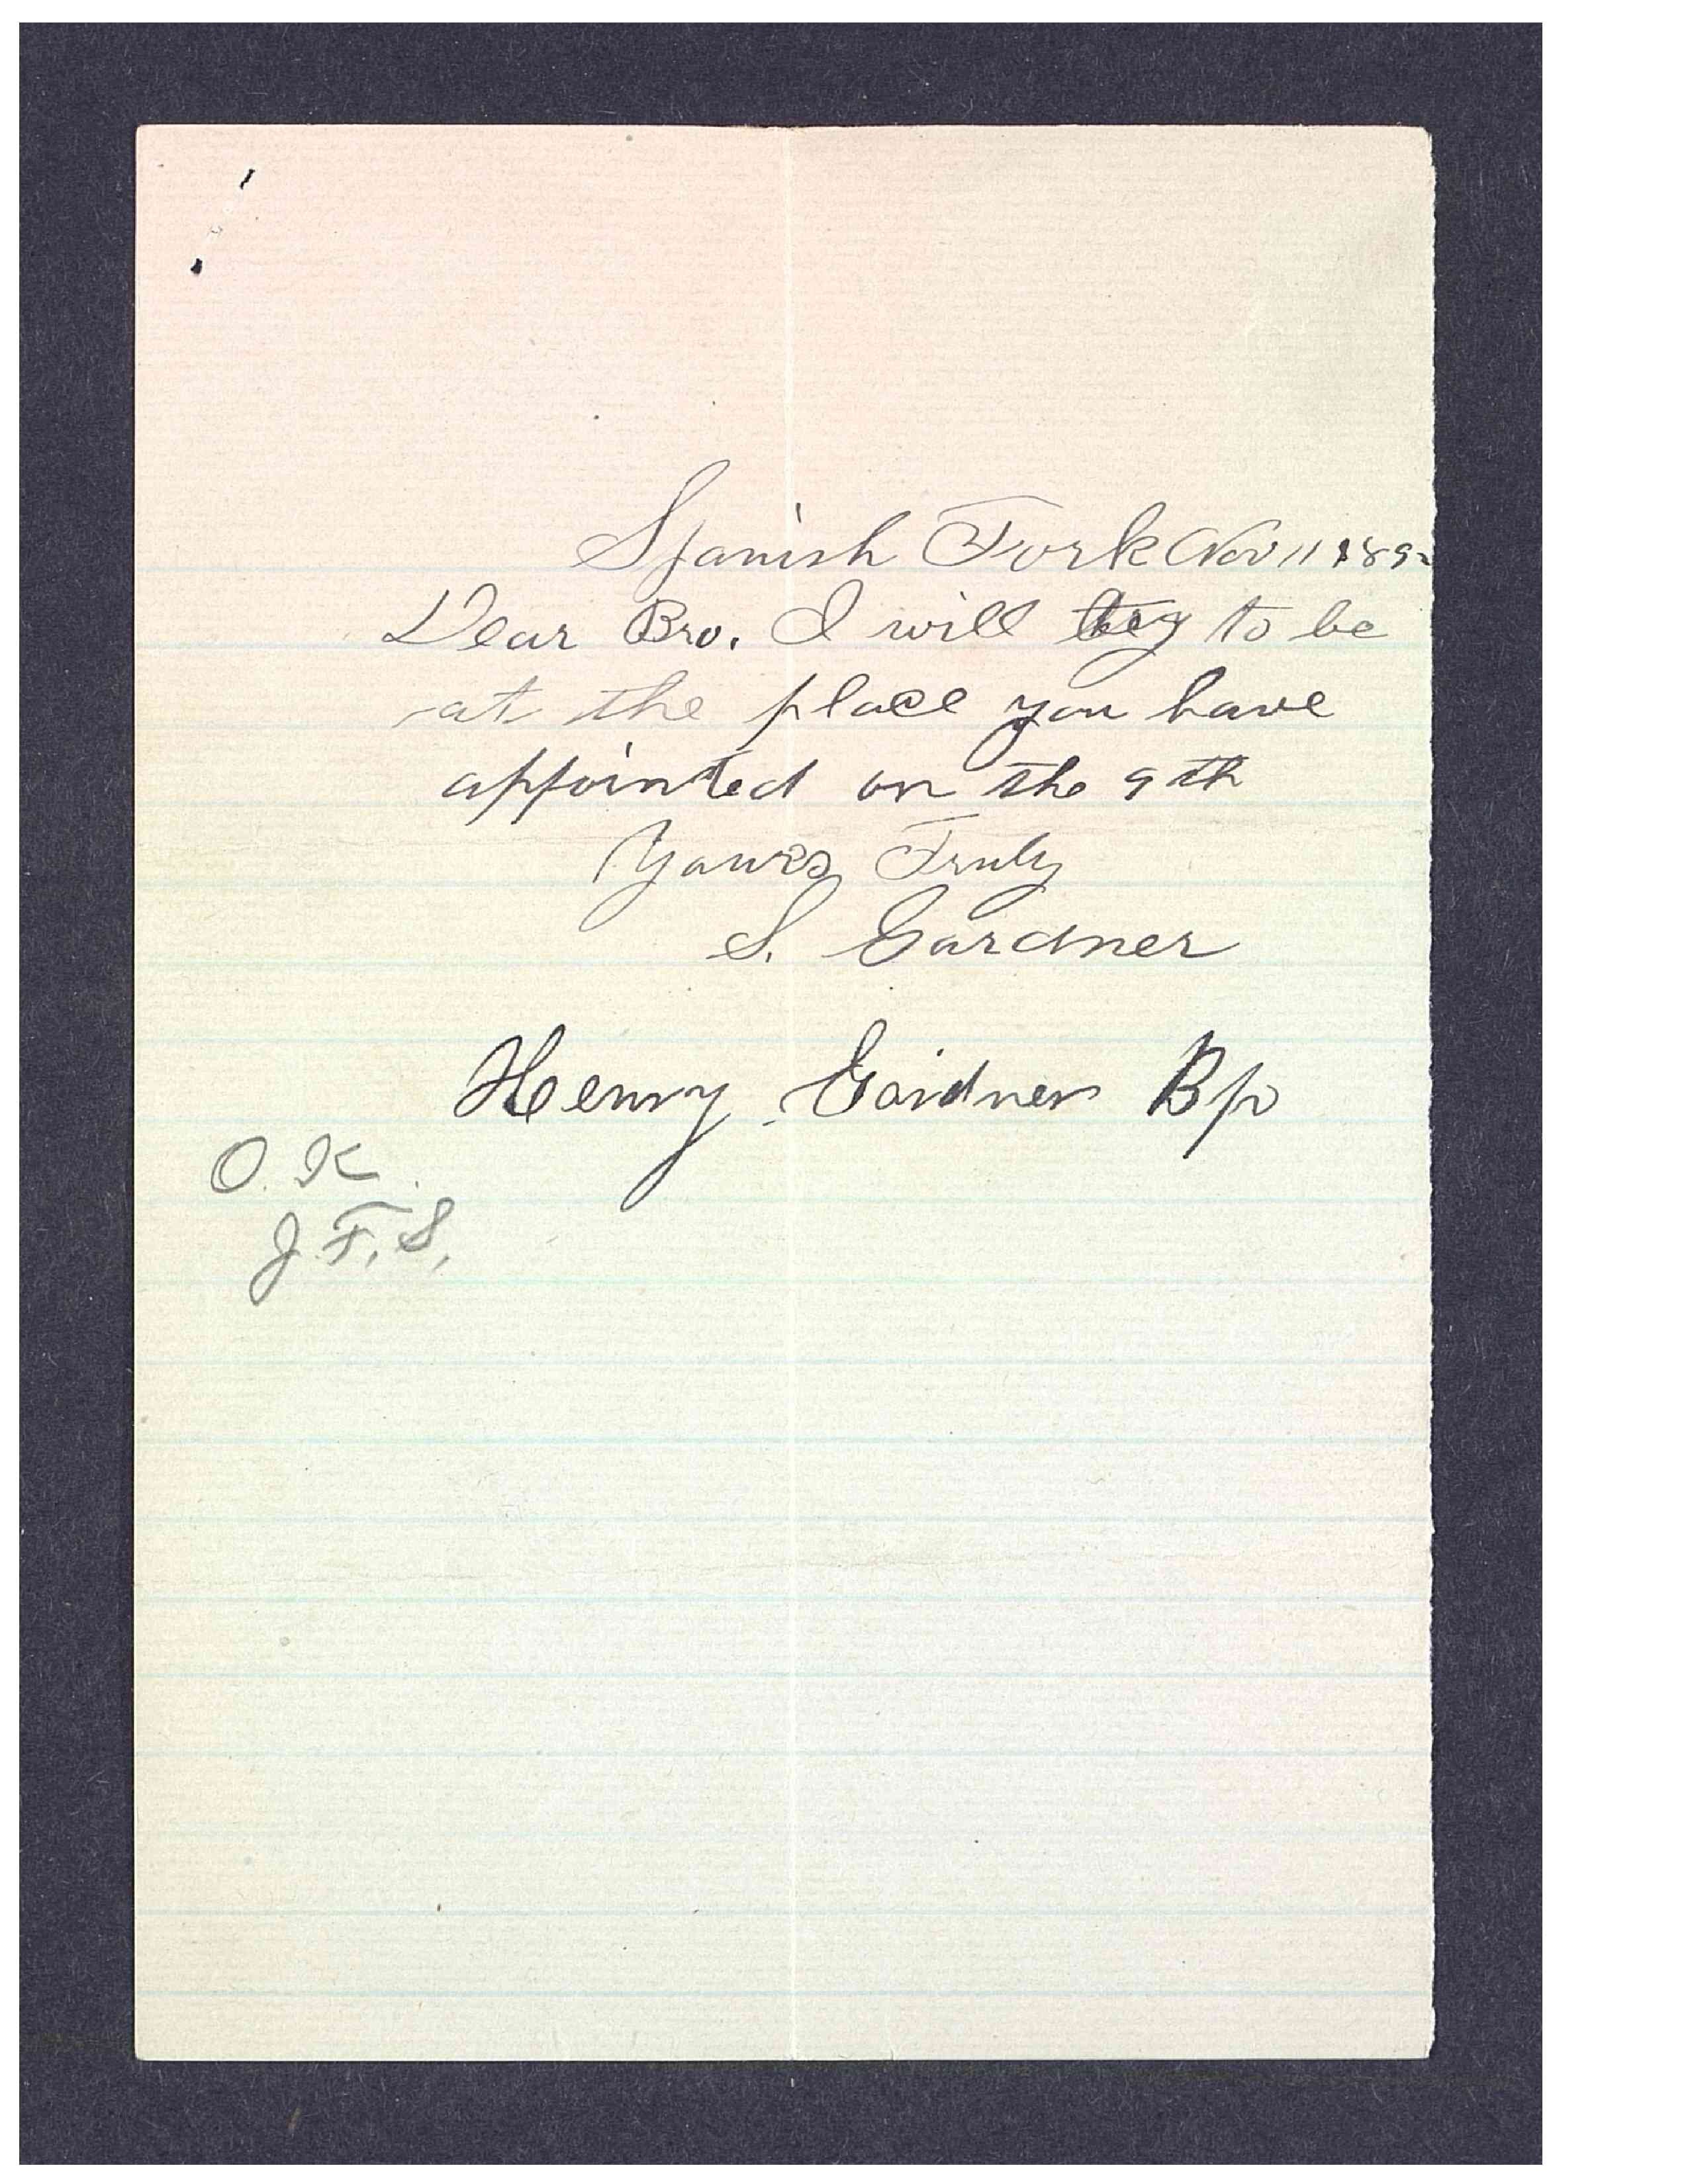 Spanish Fork Nov 11 189
Dear Bro. I will try to be
at the place you have
appointed on the 9th
Yours Truly
S. Gardner
Henry Gardner Bp
O. K.
J. F. S.